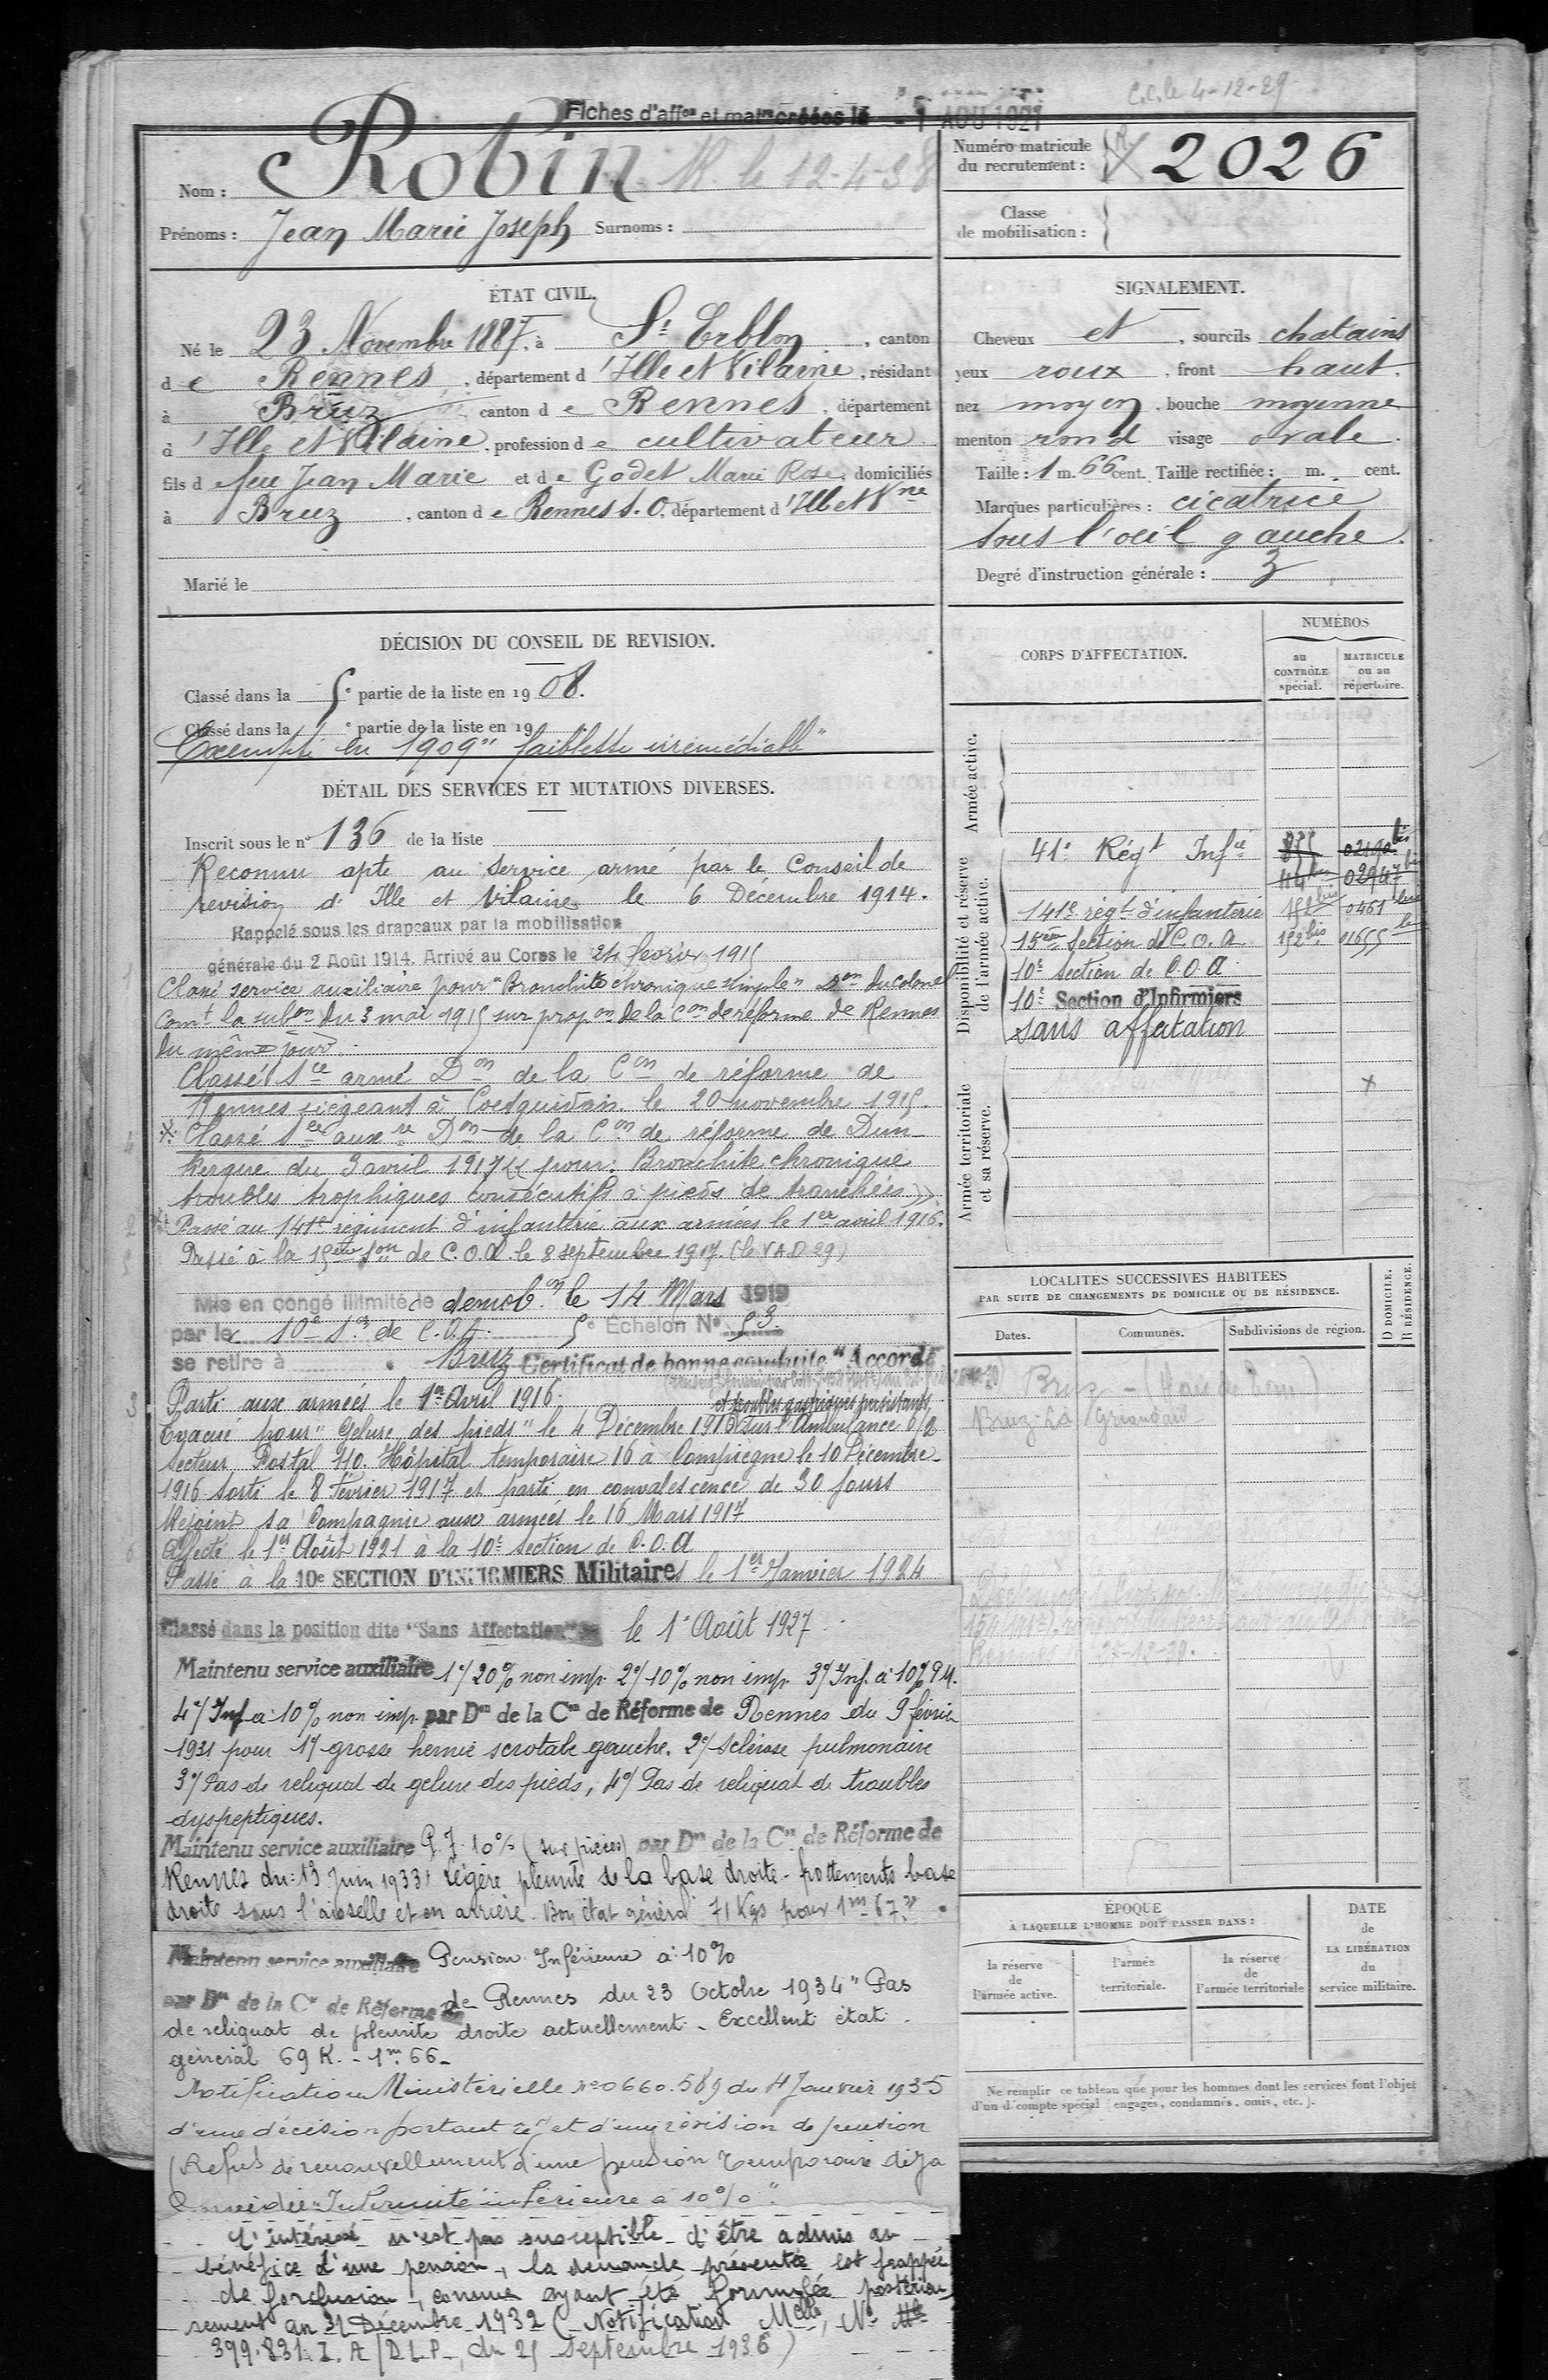 C.C. le 4-12-29
Fiches d'affon et matle créées le - 1 AOU 1921
Nom : Robin R. le 12-4-38
Numéro matricule du recrutement : 2026
Prénoms : Jean Marie Joseph Surnoms :
Classe de mobilisation :
ÉTAT CIVIL.
Né le 23 Novembre 1887, à St Erblon, canton
de Rennes, département d'Ille et Vilaine, résidant
à Bruz canton de Rennes, département
d'Ille et Vilaine, profession de cultivateur
fils de feu Jean Marie et de Godet Marie Rose, domiciliés
à Bruz, canton de Rennes S.O, département d'Ille et Vne
Marié le
SIGNALEMENT.
Cheveux et, sourcils chatains
yeux roux, front haut,
nez moyen, bouche moyenne
menton rond visage ovale.
Taille : 1 m. 66 cent. Taille rectifiée : m. cent.
Marques particulières : cicatrice
sous l'oeil gauche.
Degré d'instruction générale : 3
DÉCISION DU CONSEIL DE REVISION.
Classé dans la 5e partie de la liste en 1908.
Classé dans la e partie de la liste en 19
Exempté en 1909 "faiblesse irrémédiable"
DÉTAIL DES SERVICES ET MUTATIONS DIVERSES.
Inscrit sous le n° 136 de la liste
Reconnu apte au service armé par le Conseil de
revision d'Ille et Vilaine le 6 Décembre 1914.
Rappelé sous les drapeaux par la mobilisation
générale du 2 Août 1914. Arrivé au Corps le 24 février 1915
Classé service auxiliaire pour "Bronchite chronique simple" Don du Colonel
Comt la subon du 3 mai 1915 sur propon de la Con de réforme de Rennes
du même jour.
Classé Sce armé Don de la Con de réforme de
Rennes siégeant à Coetquidan le 20 novembre 1915.
Classé Sce auxre Don de la Con de réforme de Dun-
kerque du 3 avril 1917 << pour : Bronchite chronique
troubles trophiques consécutifs à pieds de tranchées >>
Passé au 141e régiment d'infanterie aux armées le 1er avril 1916.
Passé à la 15ème Son de C.O.A. le 8 septembre 1917. (le V.A.D. 29)
Mis en congé illimité de demobon le 14 Mars 1919
par le 10e Son de C.O.A. 5e Échelon N° 53.
se retire à Bruz Certificat de bonne conduite "Accordé"
Parti aux armées le 1er Avril 1916.
et troubles gastriques persistants
Evacué pour "Gelure des pieds" le 4 Décembre 1916 sur l'Ambulance 6/2
Secteur Postal 110. Hôpital temporaire 16 à Compiègne le 10 Décembre
1916 sorti le 8 février 1917 et parti en convalescence de 30 jours
Rejoint sa Compagnie aux armées le 16 Mars 1917
Affecté le 1er Août 1921 à la 10e section de C.O.A
Passé à la 10e SECTION D'INFIRMIERS Militaires le 1er Janvier 1924
Classé dans la position dite "Sans Affectation" le 1er Août 1927.
Maintenu service auxiliaire 1°/ 20% non imp. 2°/ 10% non imp. 3°/ Inf. à 10% P.M.
4°/ Inf à 10% non imp. par Don de la Con de Réforme de Rennes du 9 février
1931 pour 1°/ grosse hernie scrotale gauche. 2°/ Sclérose pulmonaire
3°/ Pas de reliquat de gelure des pieds, 4°/ Pas de reliquat de troubles
dyspeptiques.
Maintenu service auxiliaire P.I. 10% (sur pièces) par Don de la Con de Réforme de
Rennes du : 13 Juin 1933 : Légère pleurite de la base droite - frottements base
droite sous l'aisselle et en arrière. Bon état général 71 Kgs pour 1m 67."
Maintenu service auxiliaire Pension Inférieure à 10%
par Don de la Con de Réforme de Rennes du 23 Octobre 1934 "Pas
de reliquat de pleurite droite actuellement - Excellent état
général 69 K. - 1m 66 -
Notification Ministérielle N° 0660.589 du 4 Janvier 1935
d'une décision portant rejet d'une révision de pension
(Refus de renouvellement d'une pension temporaire déjà
concédée "Infirmité inférieure à 10%".
L'intéressé n'est pas susceptible d'être admis au
bénéfice d'une pension, la demande présentée est frappée
de forclusion, comme ayant été formulée postérieu-
rement au 31 Décembre 1932 (Notification Melle, N°
399.831. I. A / D.L.P., du 25 septembre 1936)
CORPS D'AFFECTATION.
NUMÉROS
au CONTRÔLE spécial.
MATRICULE ou au répertoire.
Armée active.
Disponibilité et réserve de l'armée active.
41e Régt Infie 02190 bis
44 02947 bis
141e régt d'infanterie 152 bis 0461
15ème Section de C.O.A 152 bis 01655
10e Section de C.O.A
10e Section d'Infirmiers
sans affectation
Armée territoriale et sa réserve.
LOCALITÉS SUCCESSIVES HABITÉES
PAR SUITE DE CHANGEMENTS DE DOMICILE OU DE RÉSIDENCE.
Dates. Communes. Subdivisions de région. D DOMICILE. R RÉSIDENCE.
Bruz
Bruz
ÉPOQUE
À LAQUELLE L'HOMME DOIT PASSER DANS :
la réserve de l'armée active.
l'armée territoriale.
la réserve de l'armée territoriale
DATE de LA LIBÉRATION du service militaire.
Ne remplir ce tableau que pour les hommes dont les services font l'objet
d'un décompte spécial (engagés, condamnés, omis, etc.).